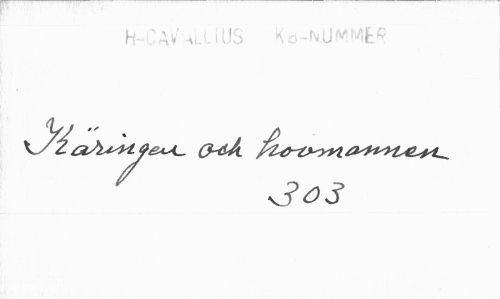 H-CAVALLIUS KB-NUMMER
Käringen och hovmannen
303